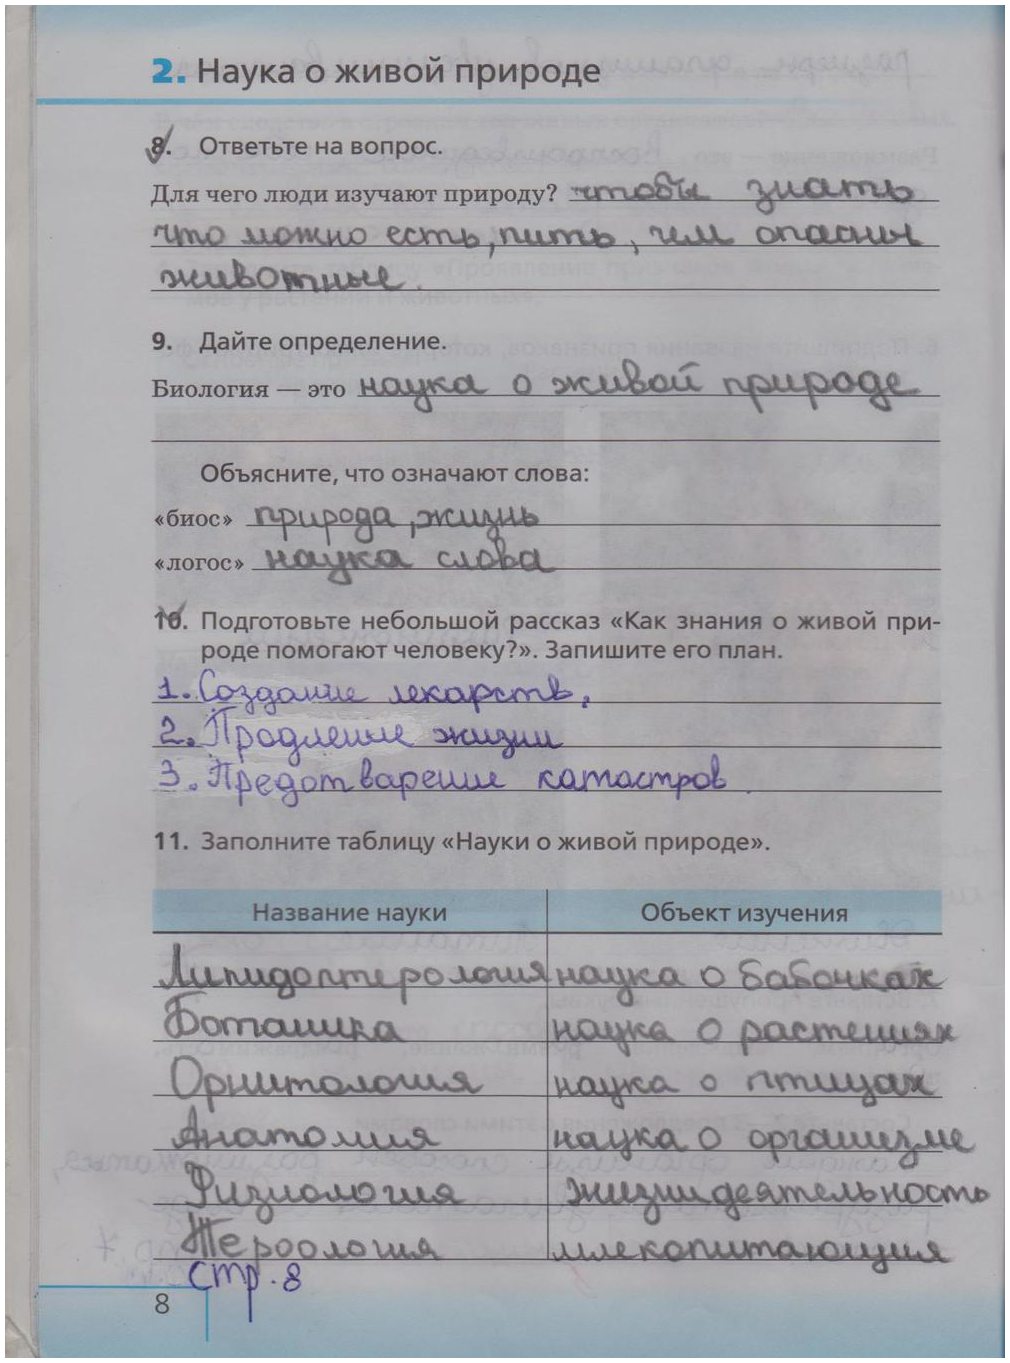 2. Наука о живой природе
8. Ответьте на вопрос.
Для чего люди изучают природу? чтобы знать
что можно есть, пить, чем опасны
животные.
9. Дайте определение.
Биология — это наука о живой природе
Объясните, что означают слова:
«биос» природа, жизнь
«логос» наука слова
10. Подготовьте небольшой рассказ «Как знания о живой при-
роде помогают человеку?». Запишите его план.
1. Создание лекарств,
2. Продление жизни
3. Предотварение катастров.
11. Заполните таблицу «Науки о живой природе».
Название науки Объект изучения
Липидоптерология наука о бабочках
Ботаника наука о растениях
Орнитология наука о птицах
Анатомия наука о организме
Физиология жизнидеятельность
Тероология млекопитающия
стр. 8
8